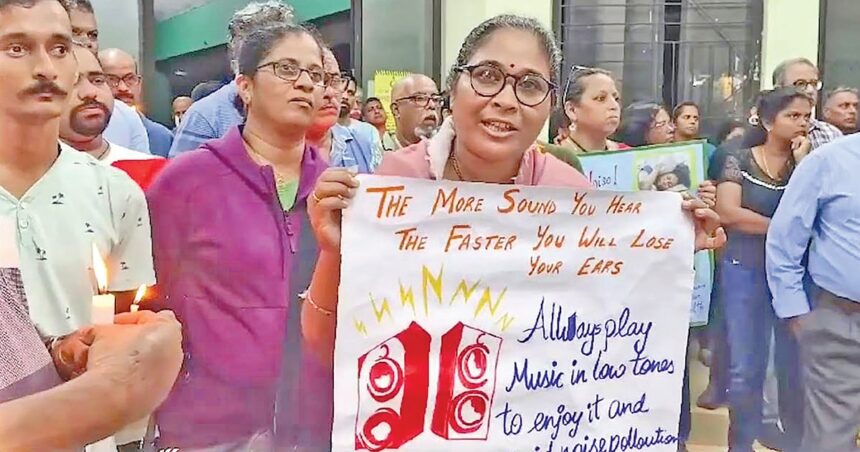 THE MORE SOUND YOU HEAR
THE FASTER YOU WILL LOSE
YOUR EARS
Allways play
Music in low tones
to enjoy it and
noise pollution